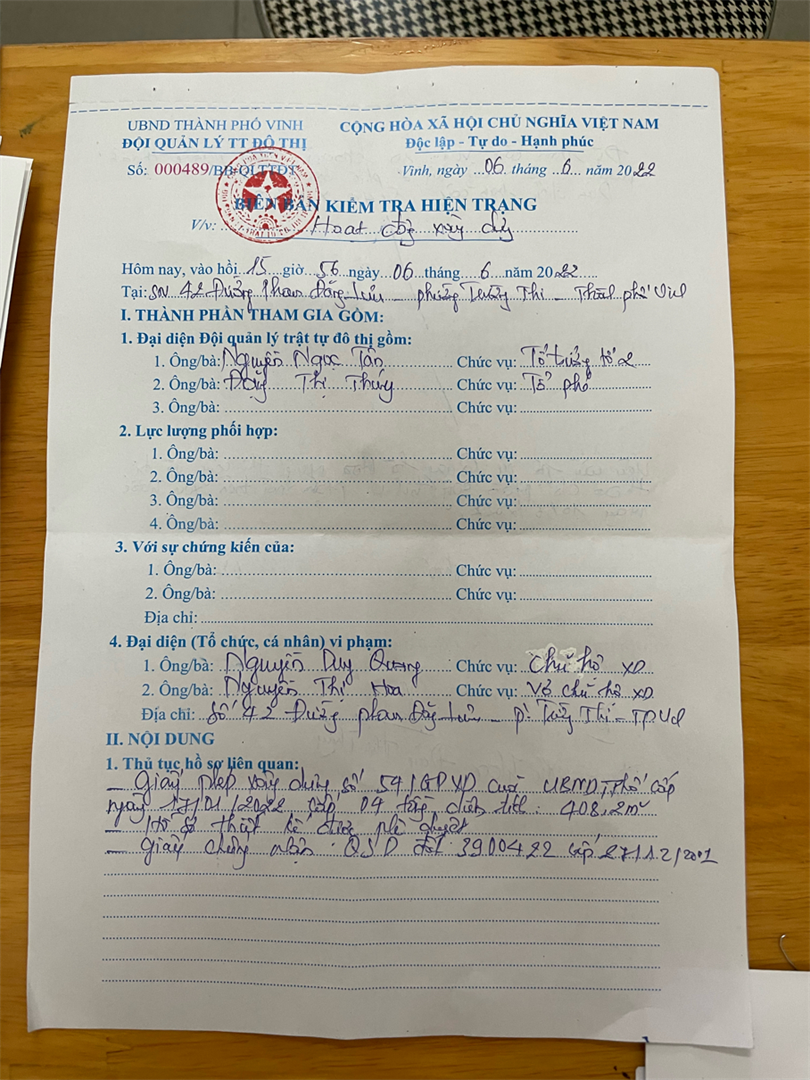 UBND THÀNH PHỐ VINH
ĐỘI QUẢN LÝ TT ĐÔ THỊ
Số: 000489/BB/QLTTĐT
CỘNG HÒA XÃ HỘI CHỦ NGHĨA VIỆT NAM
Độc lập - Tự do - Hạnh phúc
Vinh, ngày 06 tháng 6 năm 2022
BIÊN BẢN KIỂM TRA HIỆN TRẠNG
V/v: Hoạt động xây dựng
Hôm nay, vào hồi 15 giờ 56 ngày 06 tháng 6 năm 2022
Tại: SN 42 Đường Phan Đăng Lưu - phường Trường Thi - Thành phố Vinh
I. THÀNH PHẦN THAM GIA GỒM:
1. Đại diện Đội quản lý trật tự đô thị gồm:
1. Ông/bà: Nguyễn Ngọc Tân Chức vụ: Tổ trưởng tổ 2
2. Ông/bà: Đặng Thị Thúy Chức vụ: Tổ phó
3. Ông/bà: Chức vụ:
2. Lực lượng phối hợp:
1. Ông/bà: Chức vụ:
2. Ông/bà: Chức vụ:
3. Ông/bà: Chức vụ:
4. Ông/bà: Chức vụ:
3. Với sự chứng kiến của:
1. Ông/bà: Chức vụ:
2. Ông/bà: Chức vụ:
Địa chỉ:
4. Đại diện (Tổ chức, cá nhân) vi phạm:
1. Ông/bà: Nguyễn Duy Quang Chức vụ: Chủ hộ XD
2. Ông/bà: Nguyễn Thị Hoa Chức vụ: Vợ chủ hộ XD
Địa chỉ: Số 42 Đường Phan Đăng Lưu - P. Trường Thi - TP Vinh
II. NỘI DUNG
1. Thủ tục hồ sơ liên quan:
- Giấy phép xây dựng số 54/GPXD của UBND T.Phố cấp
ngày 17/01/2022 cấp 04 tầng diện tích: 408,2m²
- Hồ sơ thiết kế được phê duyệt
- Giấy chứng nhận QSD đất 3900422 cấp 27/12/2001